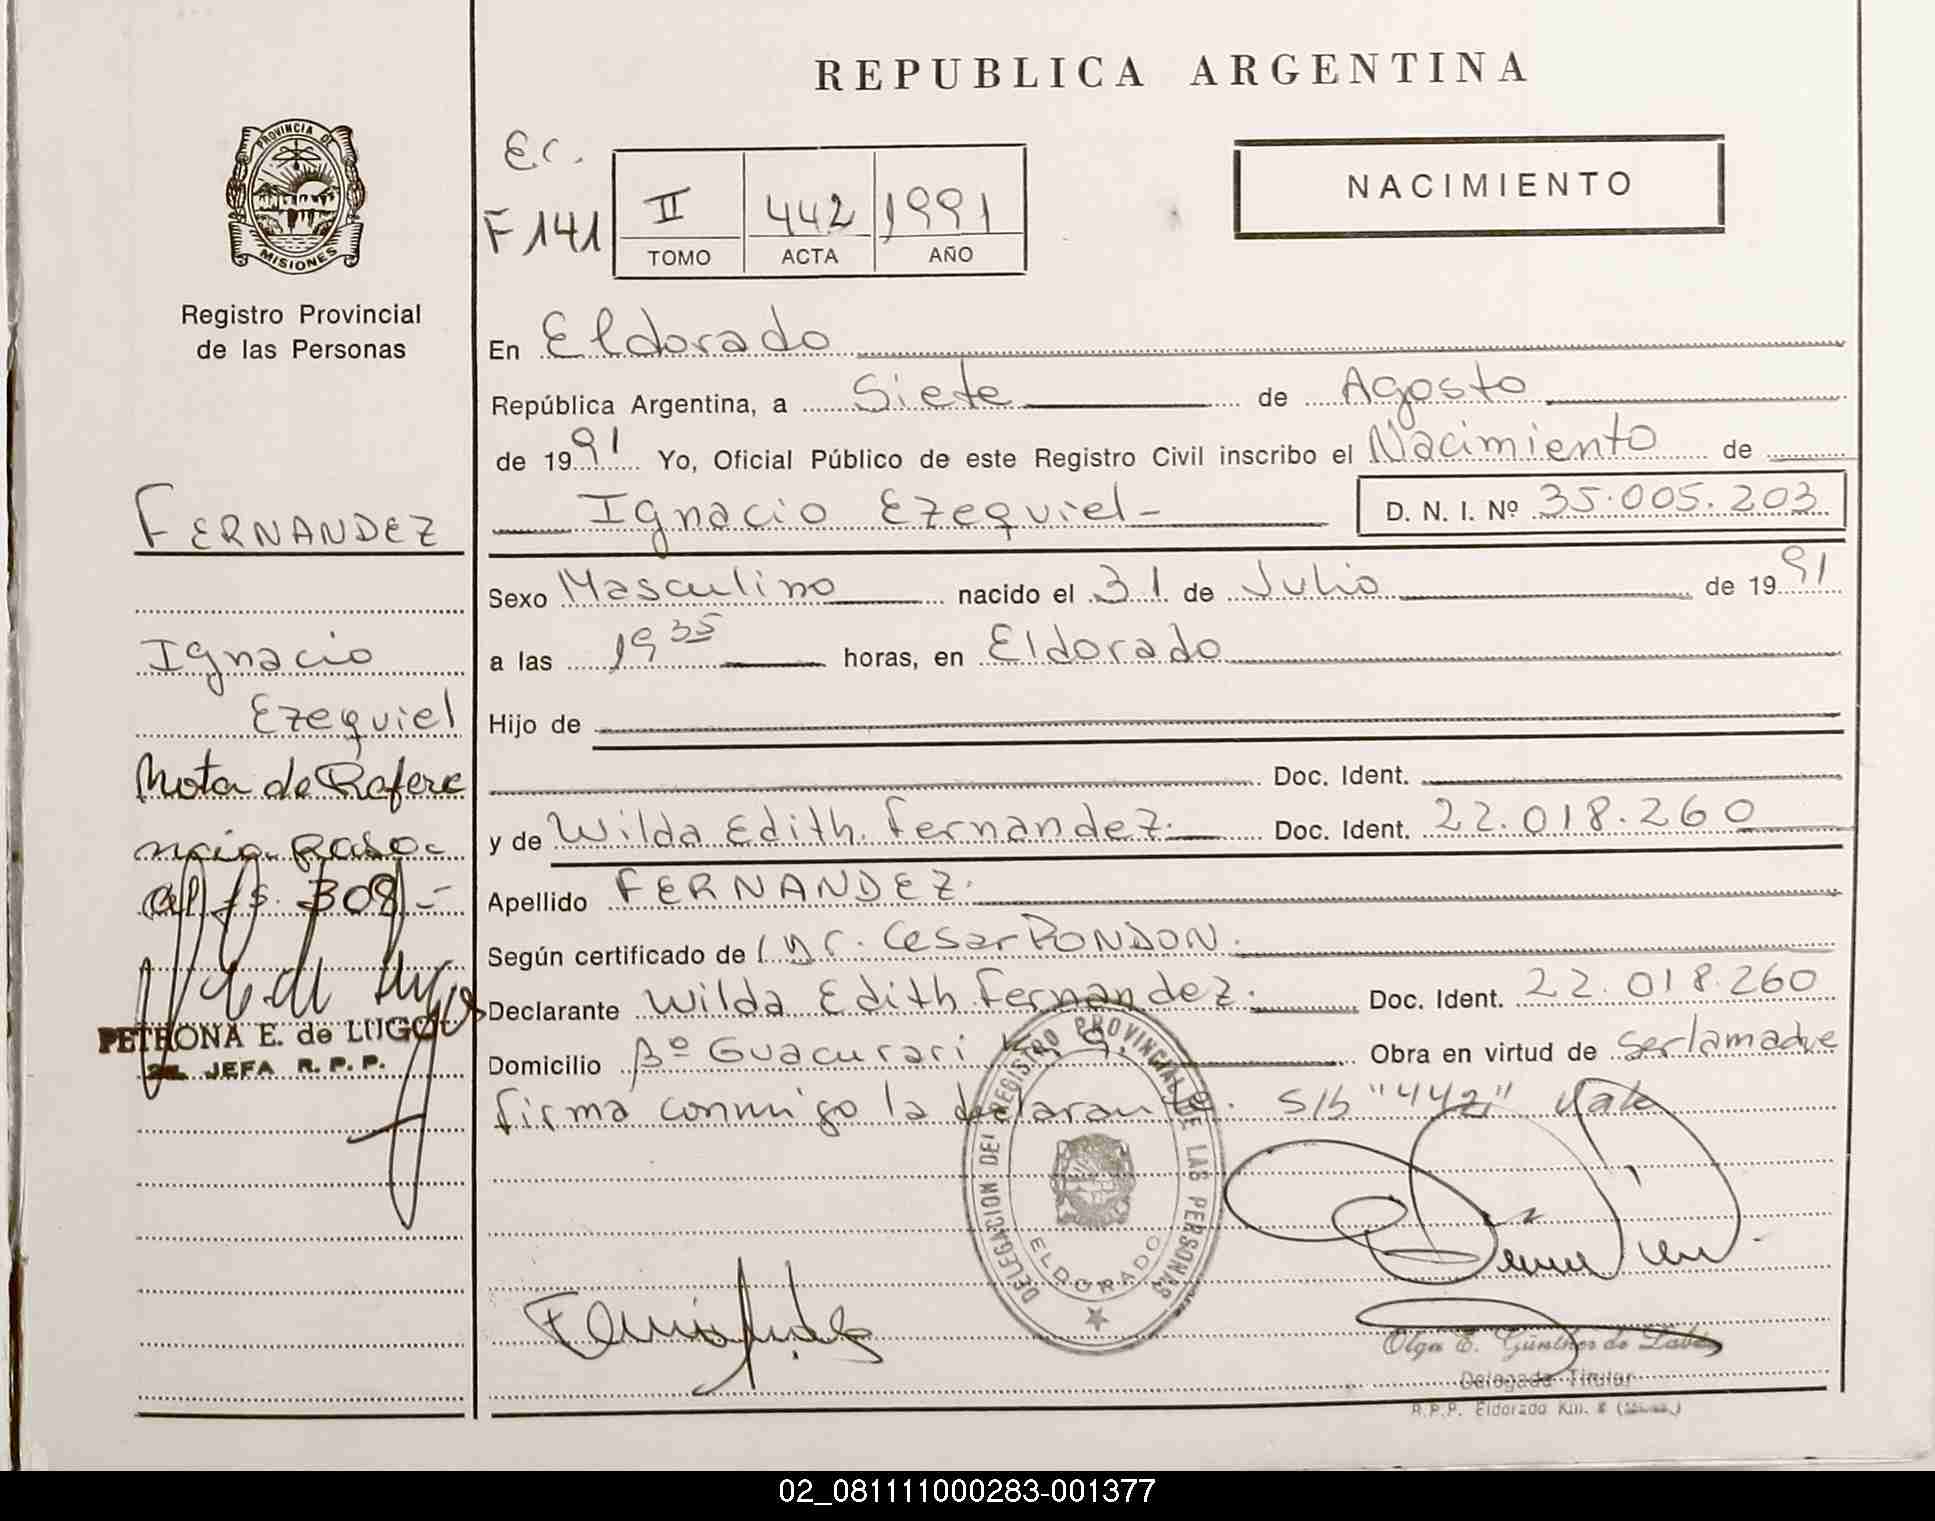 REPUBLICA ARGENTINA
PROVINCIA DE
MISIONES
Registro Provincial
de las Personas
Ec.
F 141
II 442 1991
TOMO ACTA AÑO
NACIMIENTO
En Eldorado
República Argentina, a Siete de Agosto
de 1991 Yo, Oficial Público de este Registro Civil inscribo el Nacimiento de
Ignacio Ezequiel - D. N. I. Nº 35.005.203
Sexo Masculino nacido el 31 de Julio de 1991
a las 19 35 horas, en Eldorado
Hijo de
Doc. Ident.
y de Wilda Edith Fernandez. Doc. Ident. 22.018.260
Apellido FERNANDEZ.
Según certificado de Dr. Cesar RONDON.
Declarante Wilda Edith Fernandez. Doc. Ident. 22.018.260
Domicilio Bº Guacurari K. 9. Obra en virtud de ser la madre
firma conmigo la declarante. S/b "442" Vale
FERNANDEZ
Ignacio
Ezequiel
Nota de Refere
ncia paso
al fs. 308 -
PETRONA E. de LUGO
JEFA R. P. P.
DELEGACION DEL REGISTRO PROVINCIAL DE LAS PERSONAS
ELDORADO
Olga E. Günther de
Delegada Titular
R.P.P. Eldorado Km. 8
02_081111000283-001377